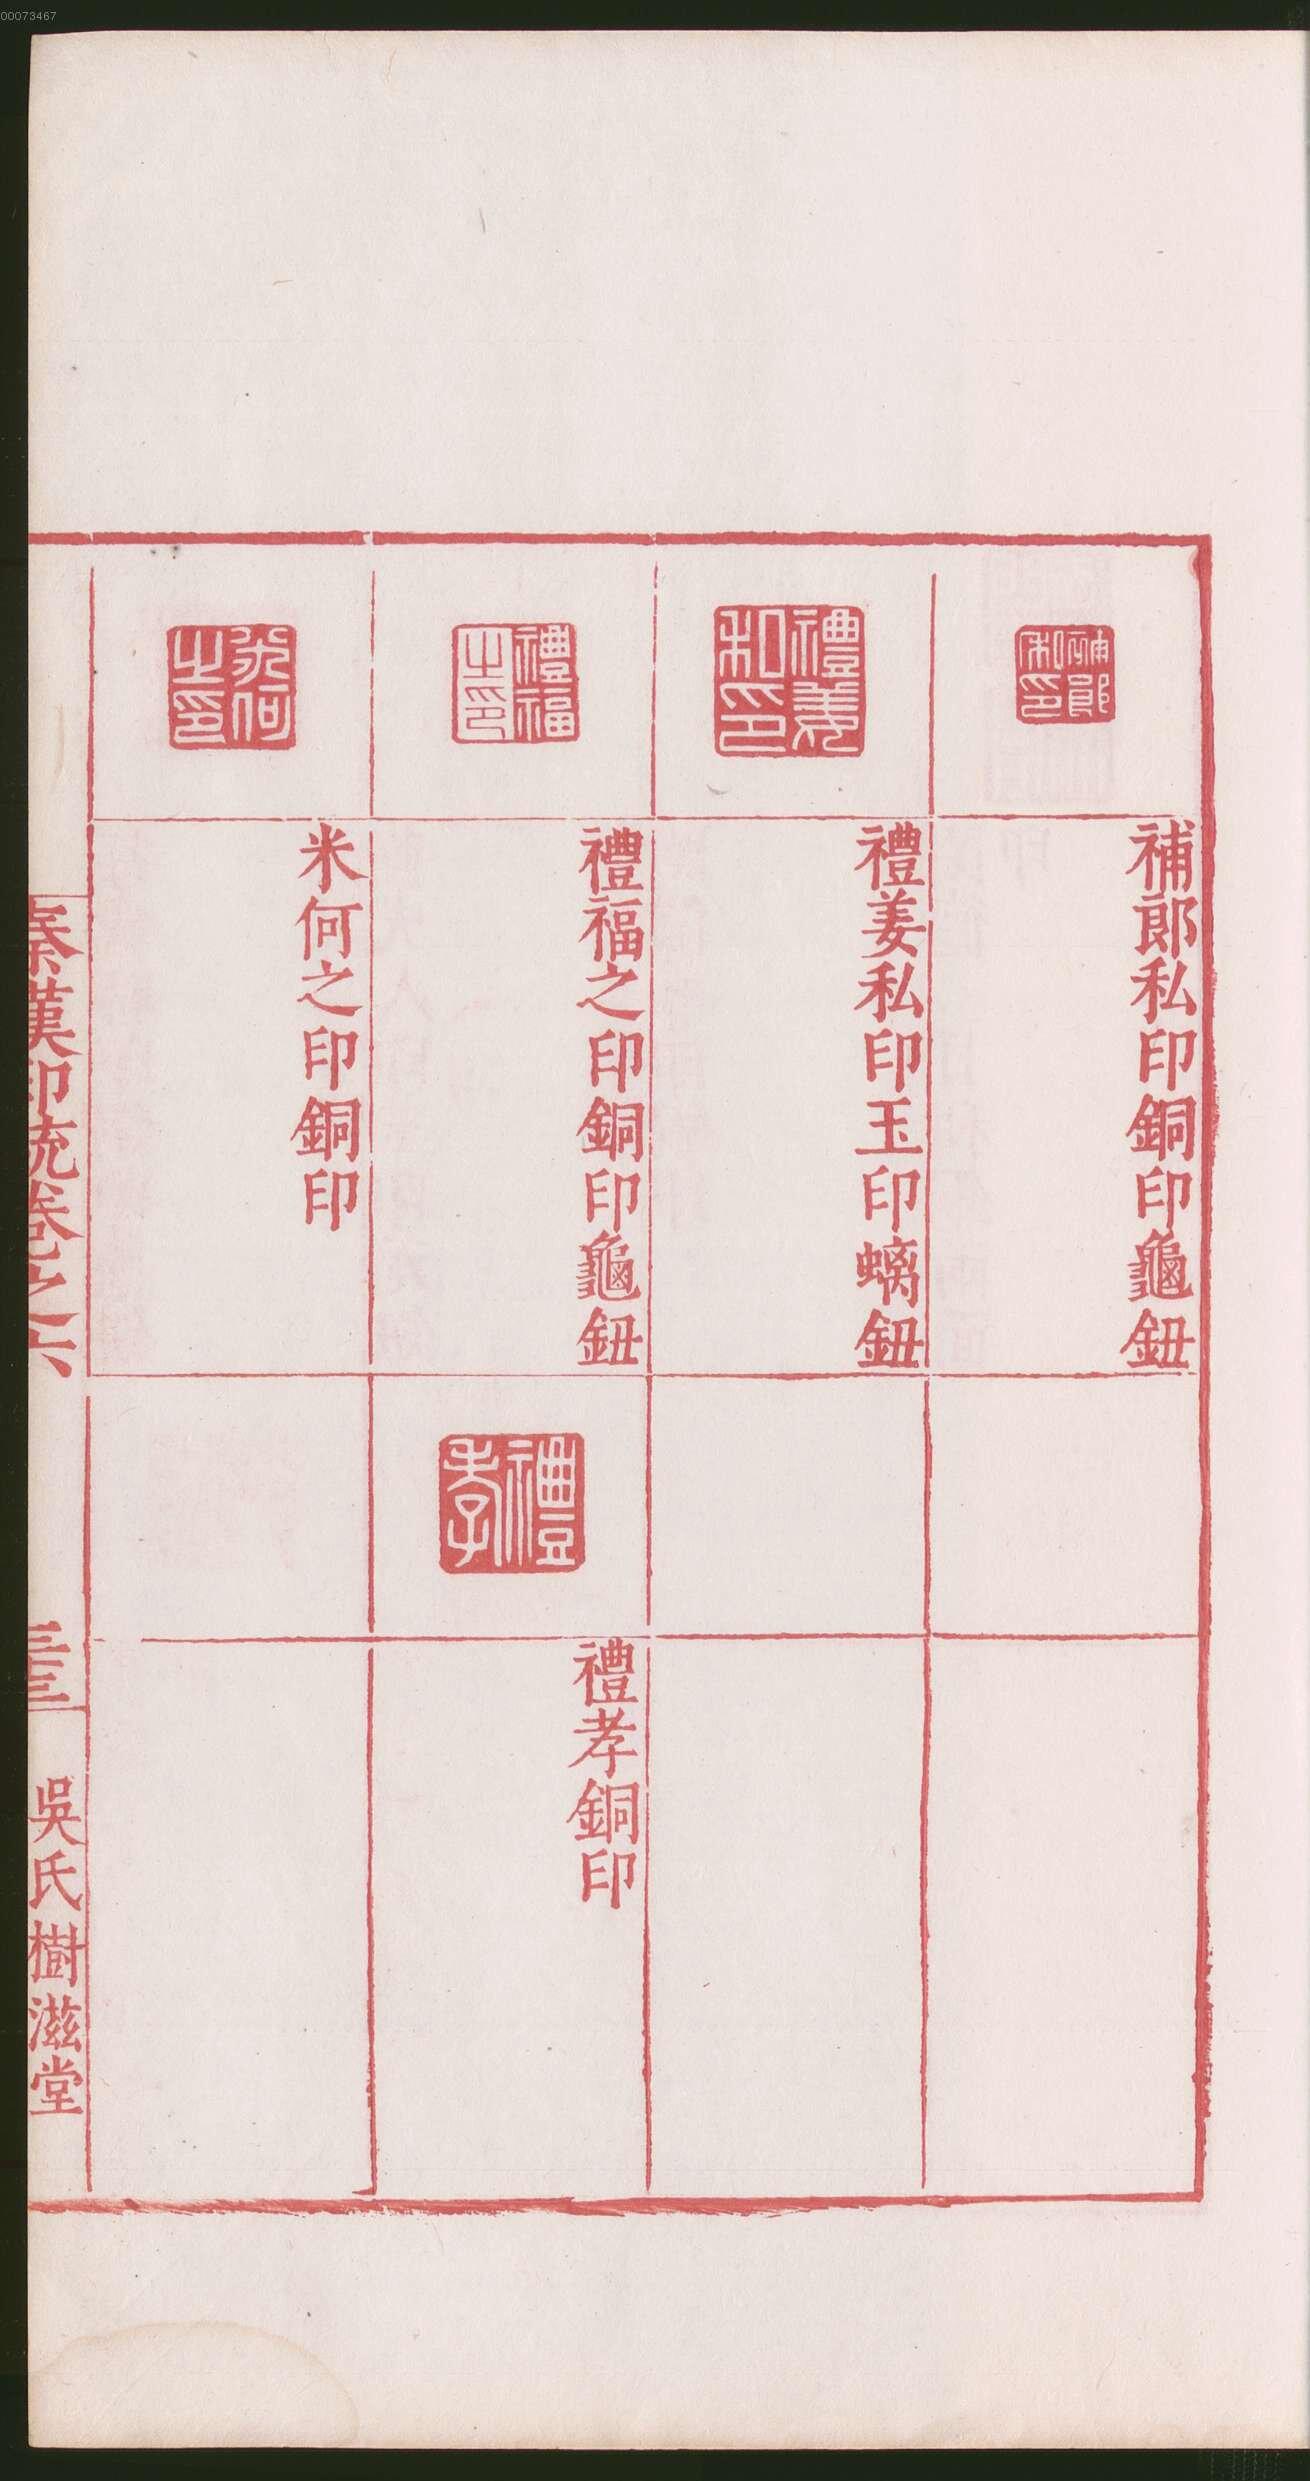 00073467
補郎
私印
補郎私印銅印龜鈕
禮姜
私印
禮姜私印玉印螭鈕
禮福
之印
禮福之印銅印龜鈕
禮孝
禮孝銅印
米何
之印
米何之印銅印
秦漢印統卷之六
吳氏樹滋堂